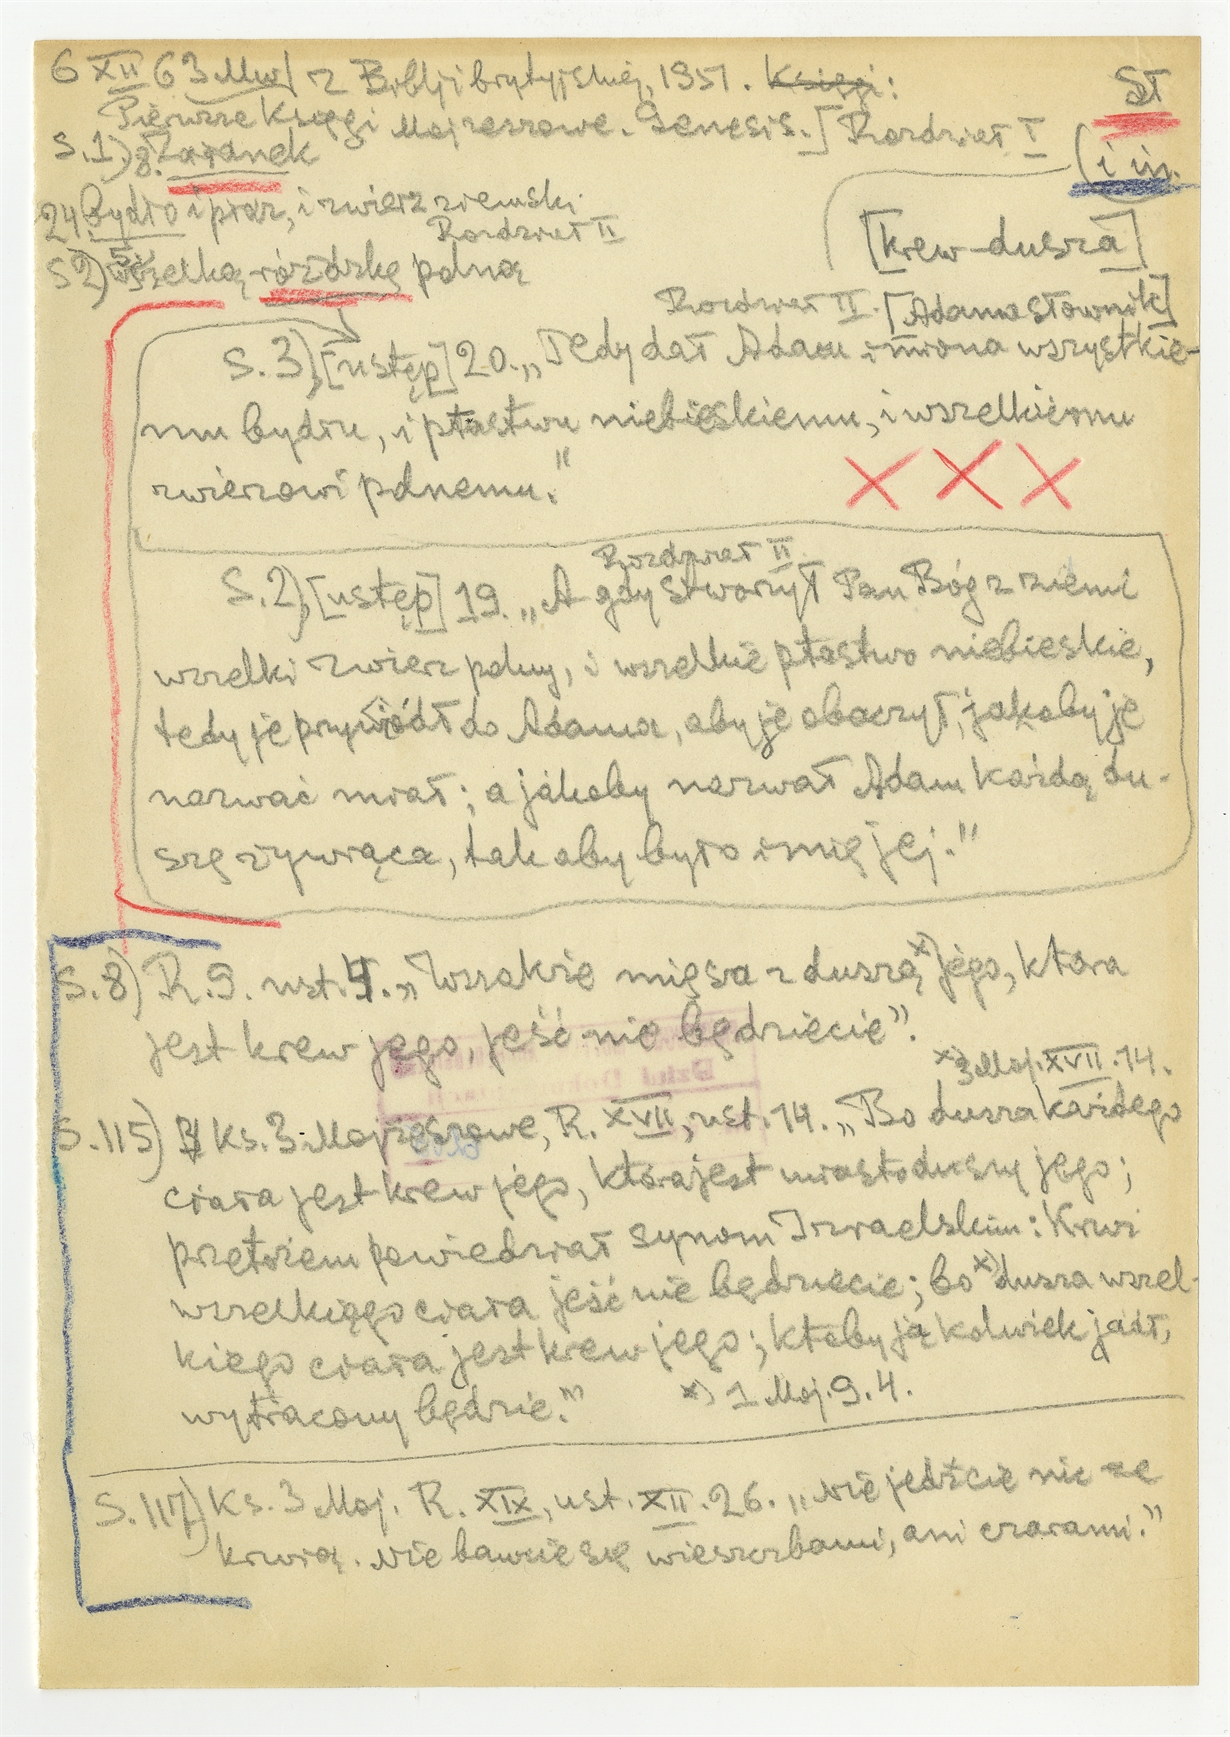 6 XII 63 Mw/ z Biblji brytyjskiej, 1951. Księgi:
St
Piérwsze Księgi Mojżeszowe. Genesis.] Rozdział I
(i in.
S.1) 8. Zaranek
24 bydło i płaz, i zwierz ziemski.
Rozdział II
[Krew-dusza]
S 2) 5. wszelką różdżkę polną
Rozdział II. [Adama słownik]
S. 3), [ustęp] 20. „Tedy dał Adam imiona wszystkie-
mu bydłu, i ptastwu niebieskiemu, i wszelkiemu
zwierzowi polnemu."
X X X
Rozdział II
S. 2), [ustęp] 19. „A gdy stworzył Pan Bóg z ziemi
wszelki zwierz polny, i wszelkie ptastwo niebieskie,
tedy je przywiódł do Adama, aby je obaczył, jakoby je
nazwać miał; a jakoby nazwał Adam każdą du-
szę żywiąca, tak aby było imię jej."
S. 8) R. 9. ust. 4. „Wszakże mięsa z duszą x) jego, która
jest krew jego, jeść nie będziecie".
x) 3 Moj. XVII. 14.
S. 115) Ks. 3 Mojżeszowe, R. XVII, ust. 14. „Bo dusza każdego
ciała jest krew jego, która jest miasto duszy jego;
przetożem powiedział synom Izraelskim: Krwi
wszelkiego ciała jeść nie będziecie; bo x) dusza wszel-
kiego ciała jest krew jego; ktoby ją kolwiek jadł,
wytracony będzie."
x) 1 Moj. 9. 4.
S. 117) Ks. 3 Moj. R. XIX, ust. XII. 26. „Nie jedzcie nic ze
krwią. Nie bawcie się wieszczbami, ani czarami."